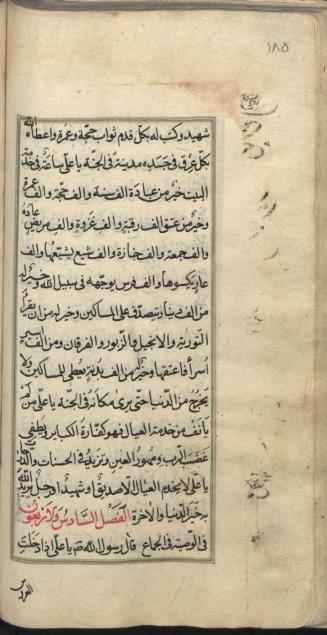 ١٨٥
شهيد وكتب له بكل قدم ثواب حجة وعمرة واعطاه الله
بكل عرق فى جسده مدينة فى الجنة يا على ساعة فى خدمة
البيت خير من عبادة الف سنة والف حجة والف عمرة
وخير من عتق الف رقبة والف غزوة والف مريض عاده
والف جمعة والف جنازة والف شبع يشبعها والف
عار يكسوها والف فرس يوجهه فى سبيل الله وخير له
من الف دينار يتصدق على المساكين وخير له من ان يقرأ
التورية والانجيل والزبور والفرقان ومن الف اسير
اسر فاعتقها وخير له من الف بدنة يعطى للمساكين ولا
يخرج من الدنيا حتى يرى مكانه فى الجنة يا على من لم
يأنف من خدمة العيال فهو كفارة الكباير ويطفى
غضب الرب ومهور العين وتزيد فى الحسنات والدرجات
يا على لا يخدم العيال الا صديق او شهيد او رجل يريد الله
به خير الدنيا والاخرة الفصل السادس والاربعون
فى الوصية فى الجماع قال رسول الله ص يا على اذا دخلت
العروس